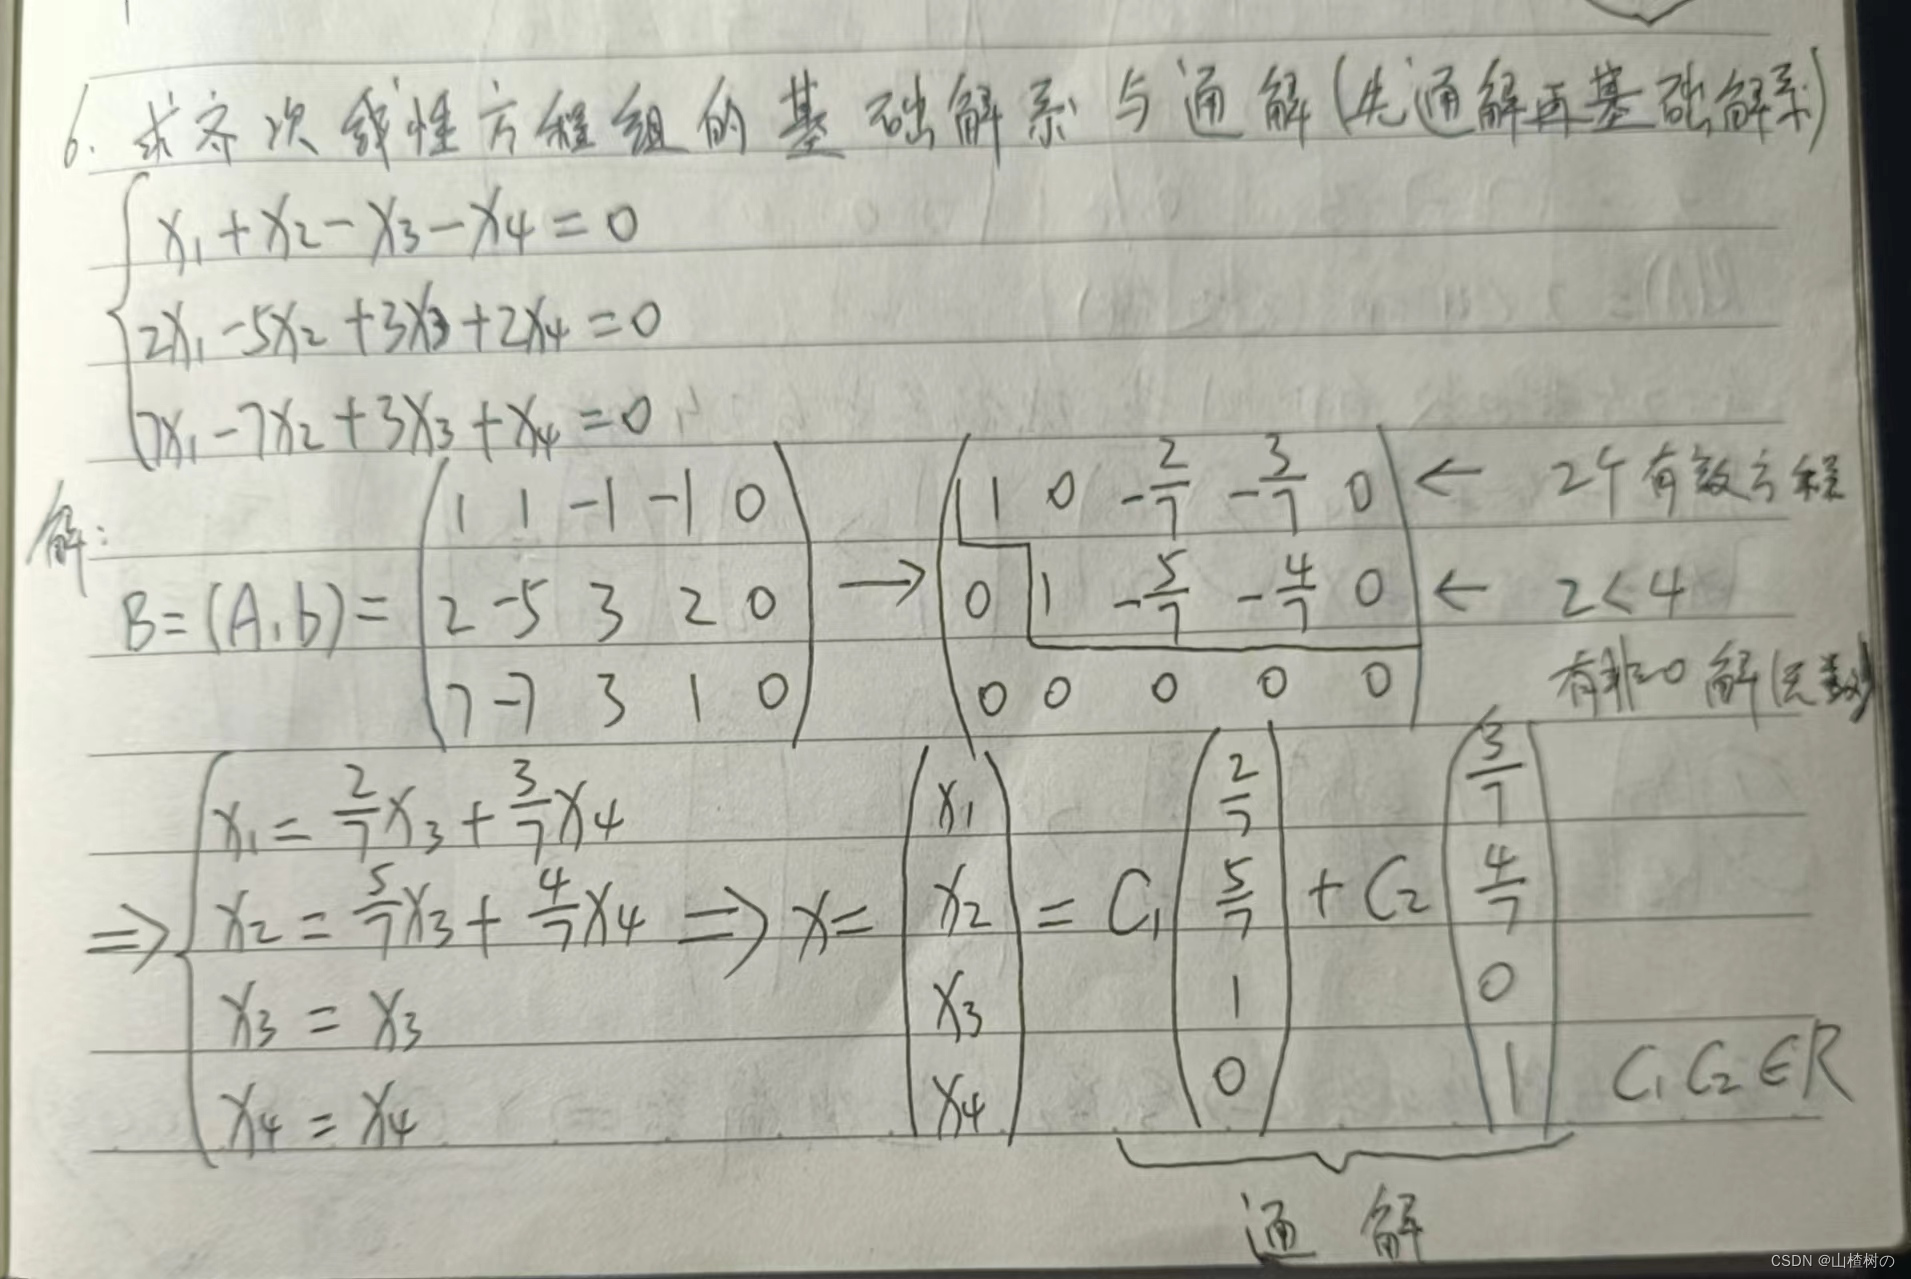 6. 求齐次线性方程组的基础解系与通解(先通解再基础解系)
x1+x2-x3-x4=0
2x1-5x2+3x3+2x4=0
7x1-7x2+3x3+x4=0
解:
B=(A,b)=
1 1 -1 -1 0
2 -5 3 2 0
7 -7 3 1 0
→
1 0 -2/7 -3/7 0 ← 2个有效方程
0 1 -5/7 -4/7 0 ← 2<4
0 0 0 0 0 有非0解(无数)
⇒
x1=2/7x3+3/7x4
x2=5/7x3+4/7x4
x3=x3
x4=x4
⇒ x=
x1
x2
x3
x4
= C1
2/7
5/7
1
0
+ C2
3/7
4/7
0
1
C1 C2∈R
通解
CSDN @山楂树の